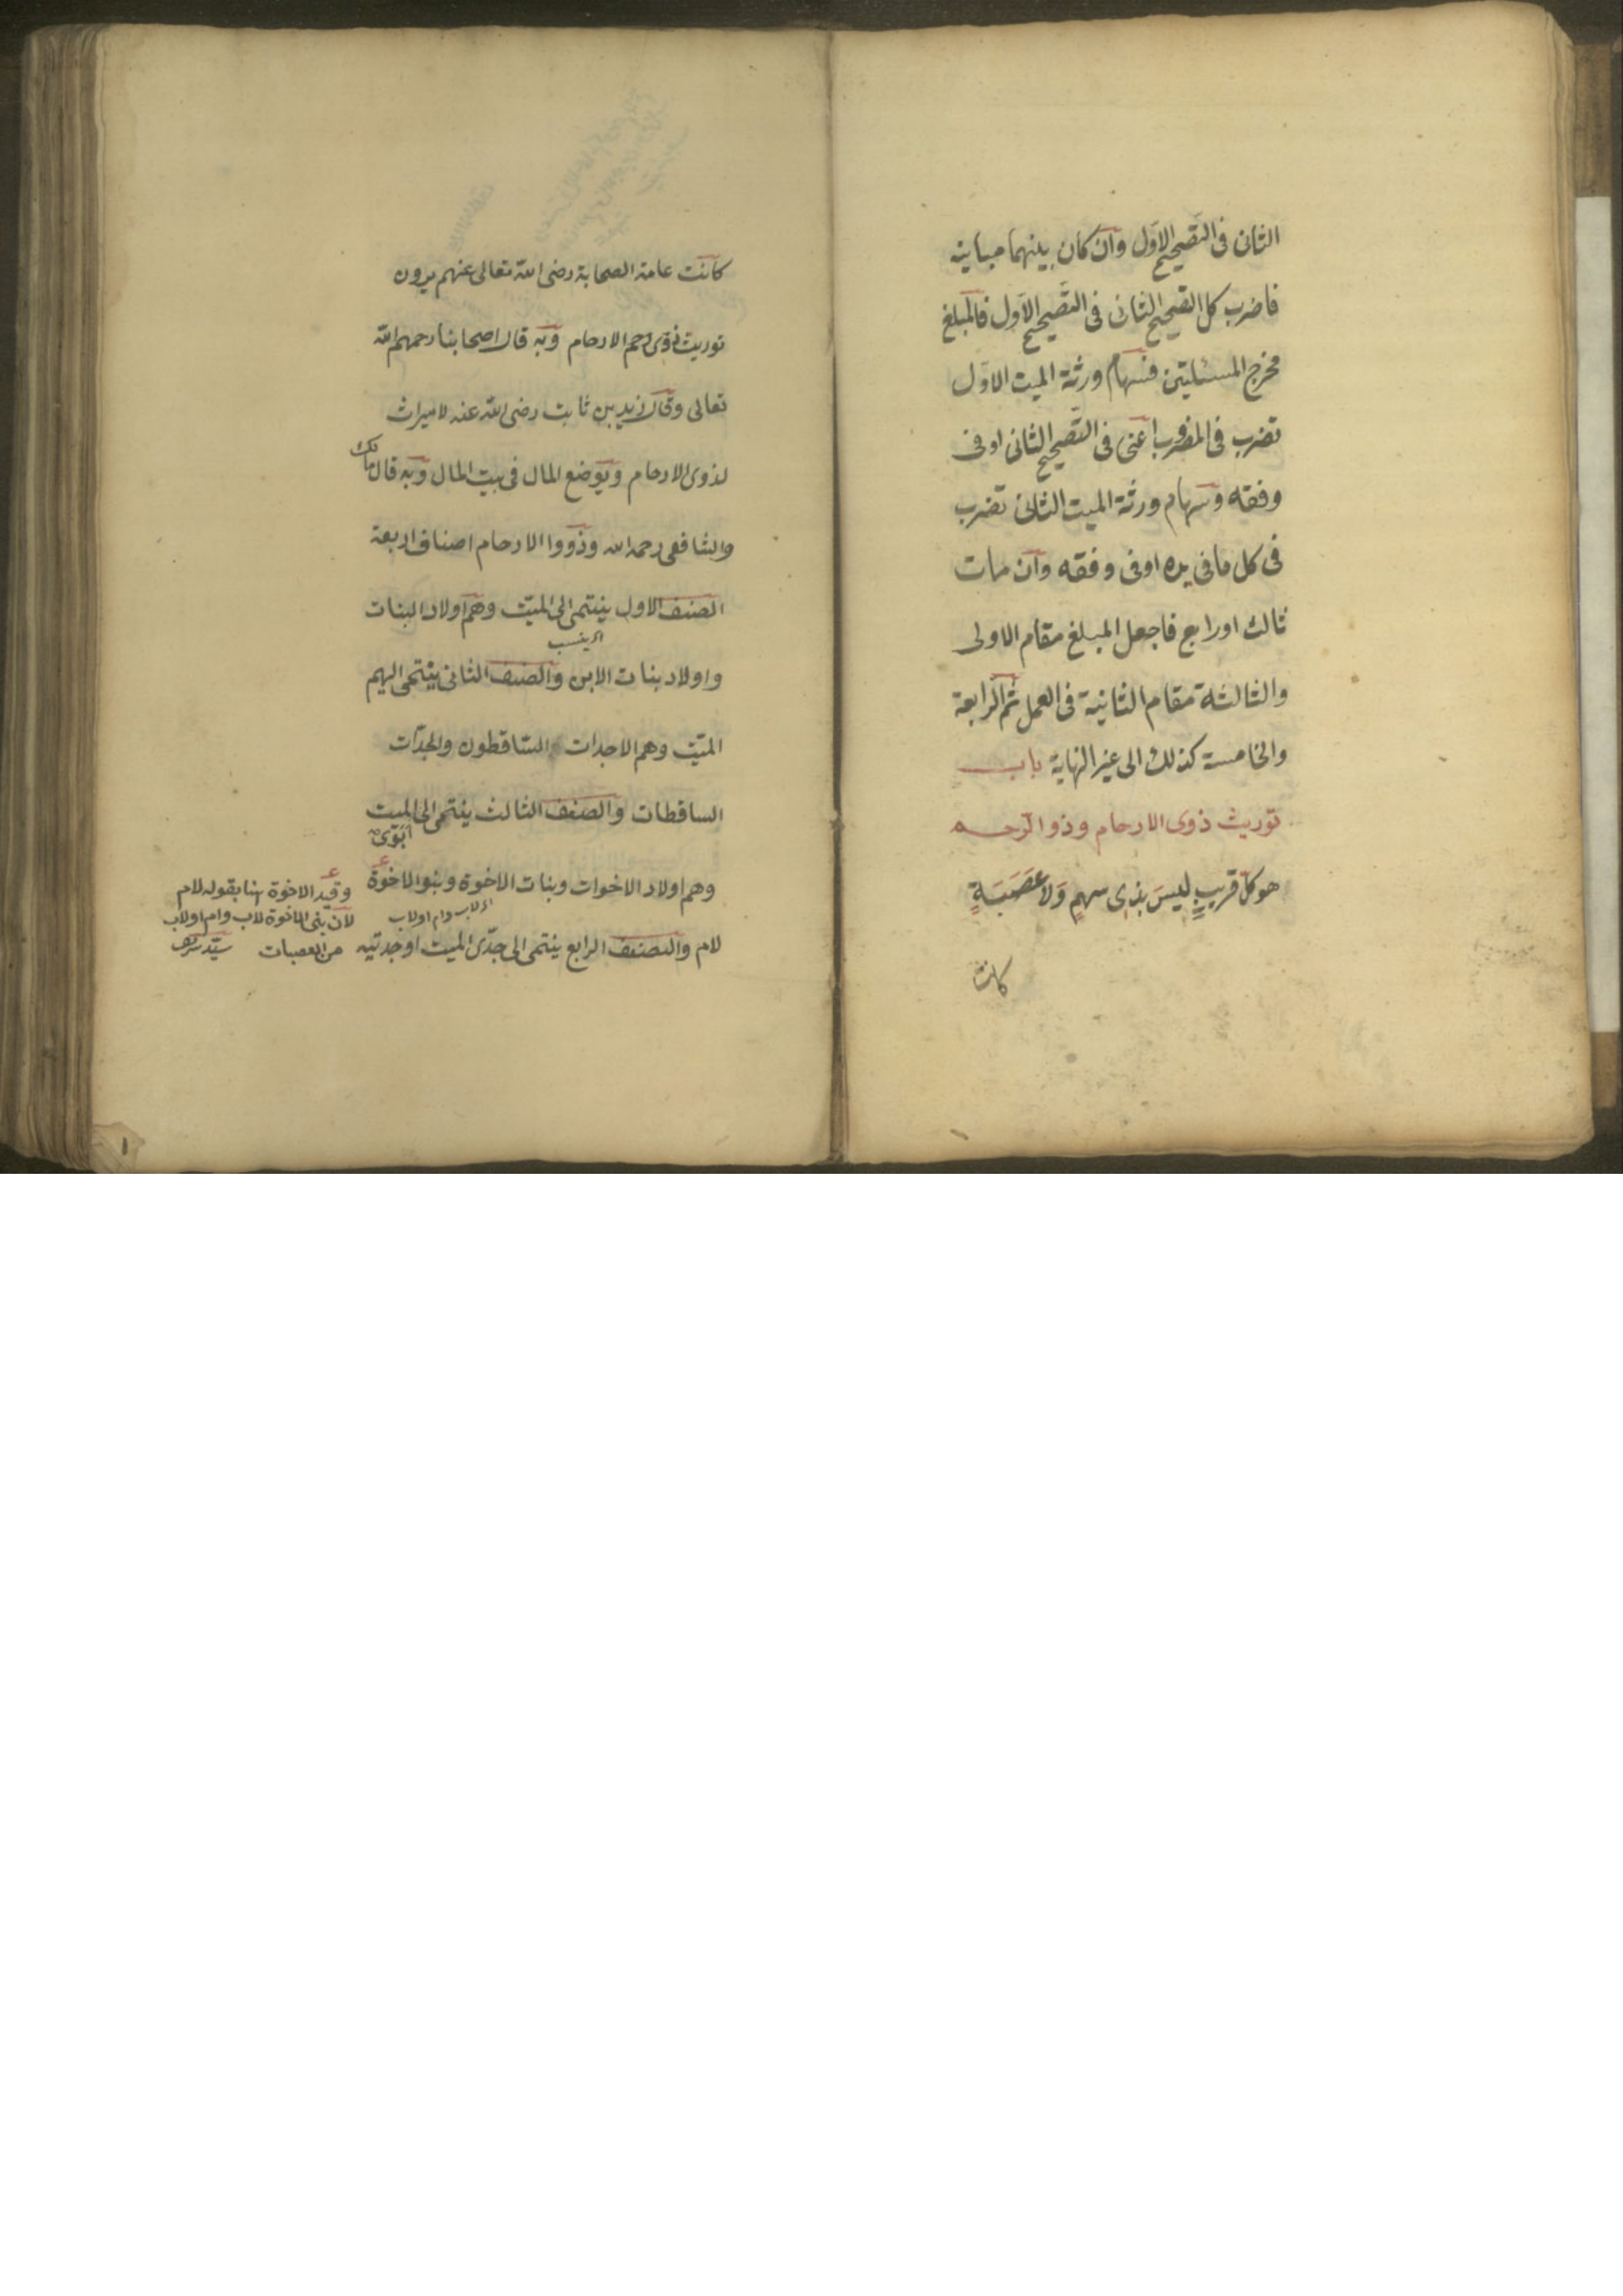 الثانى فى التصحيح الاول وان كان بينهما مباينة
فاضرب كل التصحيح الثانى فى التصحيح الاول فالمبلغ
مخرج المسئلتين فسهام ورثة الميت الاول
تضرب فى المضروب اعنى فى التصحيح الثانى او فى
وفقه وسهام ورثة الميت الثانى تضرب
فى كل ما فى يده او فى وفقه وان مات
ثالث او رابع فاجعل المبلغ مقام الاولى
والثالثة مقام الثانية فى العمل ثم الرابعة
والخامسة كذلك الى غير النهاية باب
توريث ذوى الارحام وذو الرحم
هو كل قريبٍ ليسَ بذِى سهمٍ وَلا عَصَبَةٍ
كانت
كانت عامة الصحابة رضى الله تعالى عنهم يرون
توريث ذوى رحم الارحام وبه قال اصحابنا رحمهم الله
تعالى وقال زيد بن ثابت رضى الله عنه لا ميراث
لذوى الارحام ويوضع المال فى بيت المال وبه قال مالك
والشافعى رحمه الله وذووا الارحام اصناف اربعة
الصنف الاول ينتمى الى الميّت وهم اولاد البنات
اى ينسب
واولاد بنات الابن والصنف الثانى ينتمى اليهم
الميّت وهم الاجداد الساقطون والجدّات
الساقطات والصنف الثالث ينتمى الى الميت
ابوى
وهم اولاد الاخوات وبنات الاخوة وبنو الاخوة
اى لاب وام او لاب
لام والصنف الرابع ينتمى الى جدّى الميت او جدتيه
وقيد الاخوة هنا بقوله لام
لان بنى الاخوة لاب وام او لاب
من العصبات سيّد
١